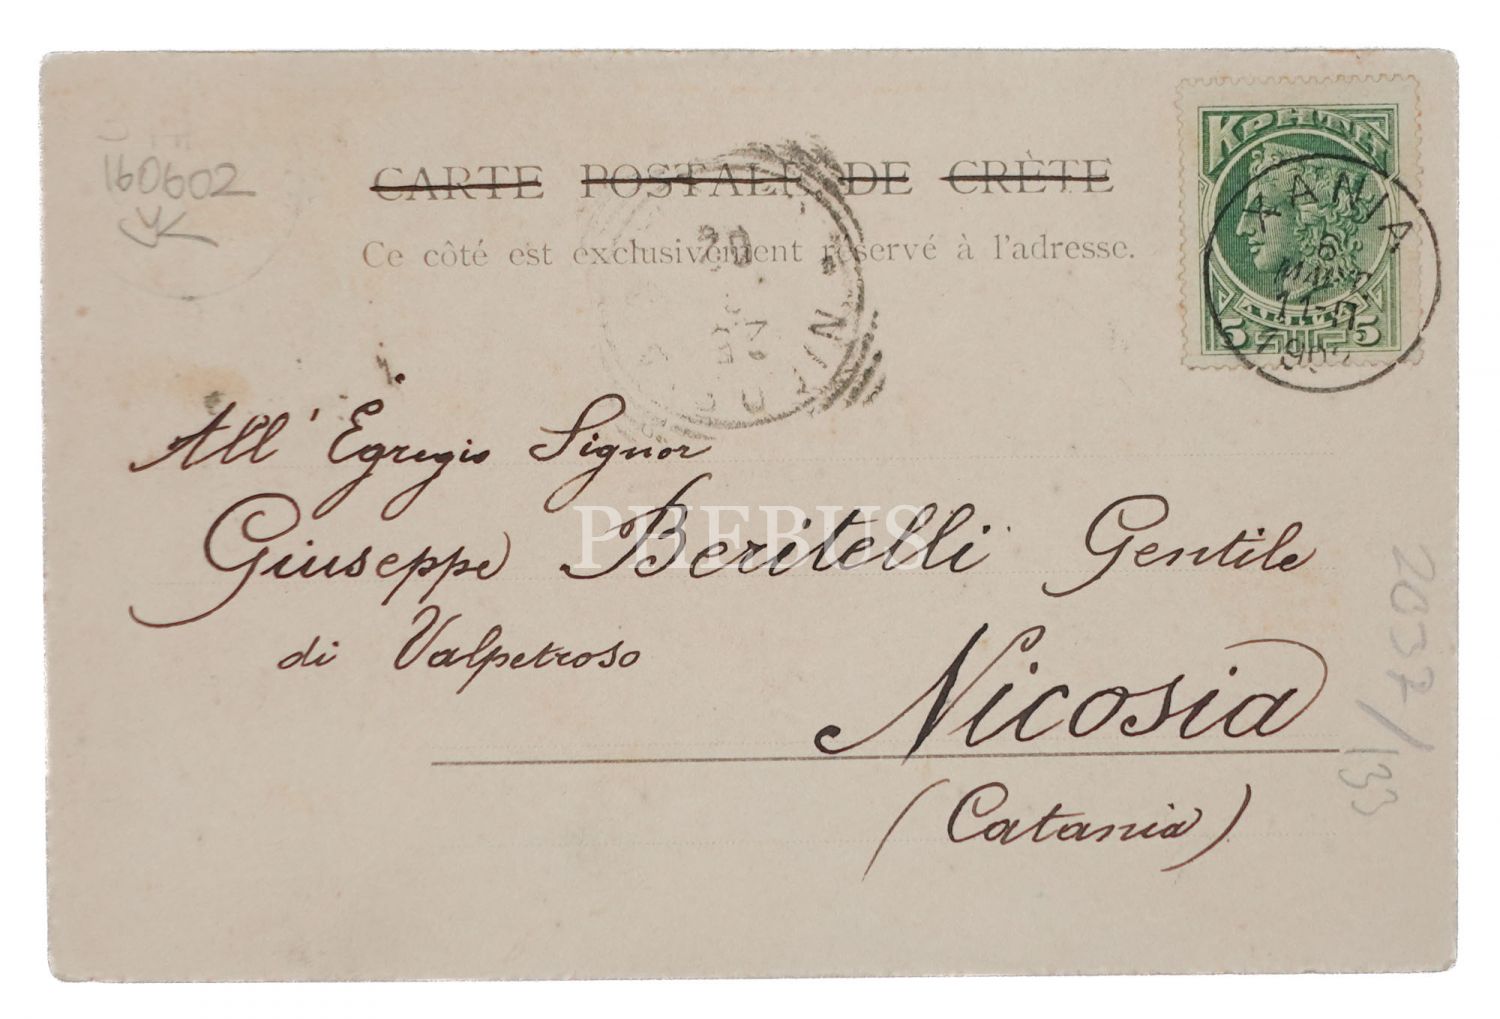 160602
CARTE POSTALE DE CRÈTE
Ce côté est exclusivement réservé à l'adresse.
ΚΡΗΤΗ
5 ΛΕΠΤΑ 5
ΧΑΝΙΑ
6
11-Π
All' Egregio Signor
Giuseppe Beritelli Gentile
PHEBUS
di Valpetroso
Nicosia
(Catania)
2037/133